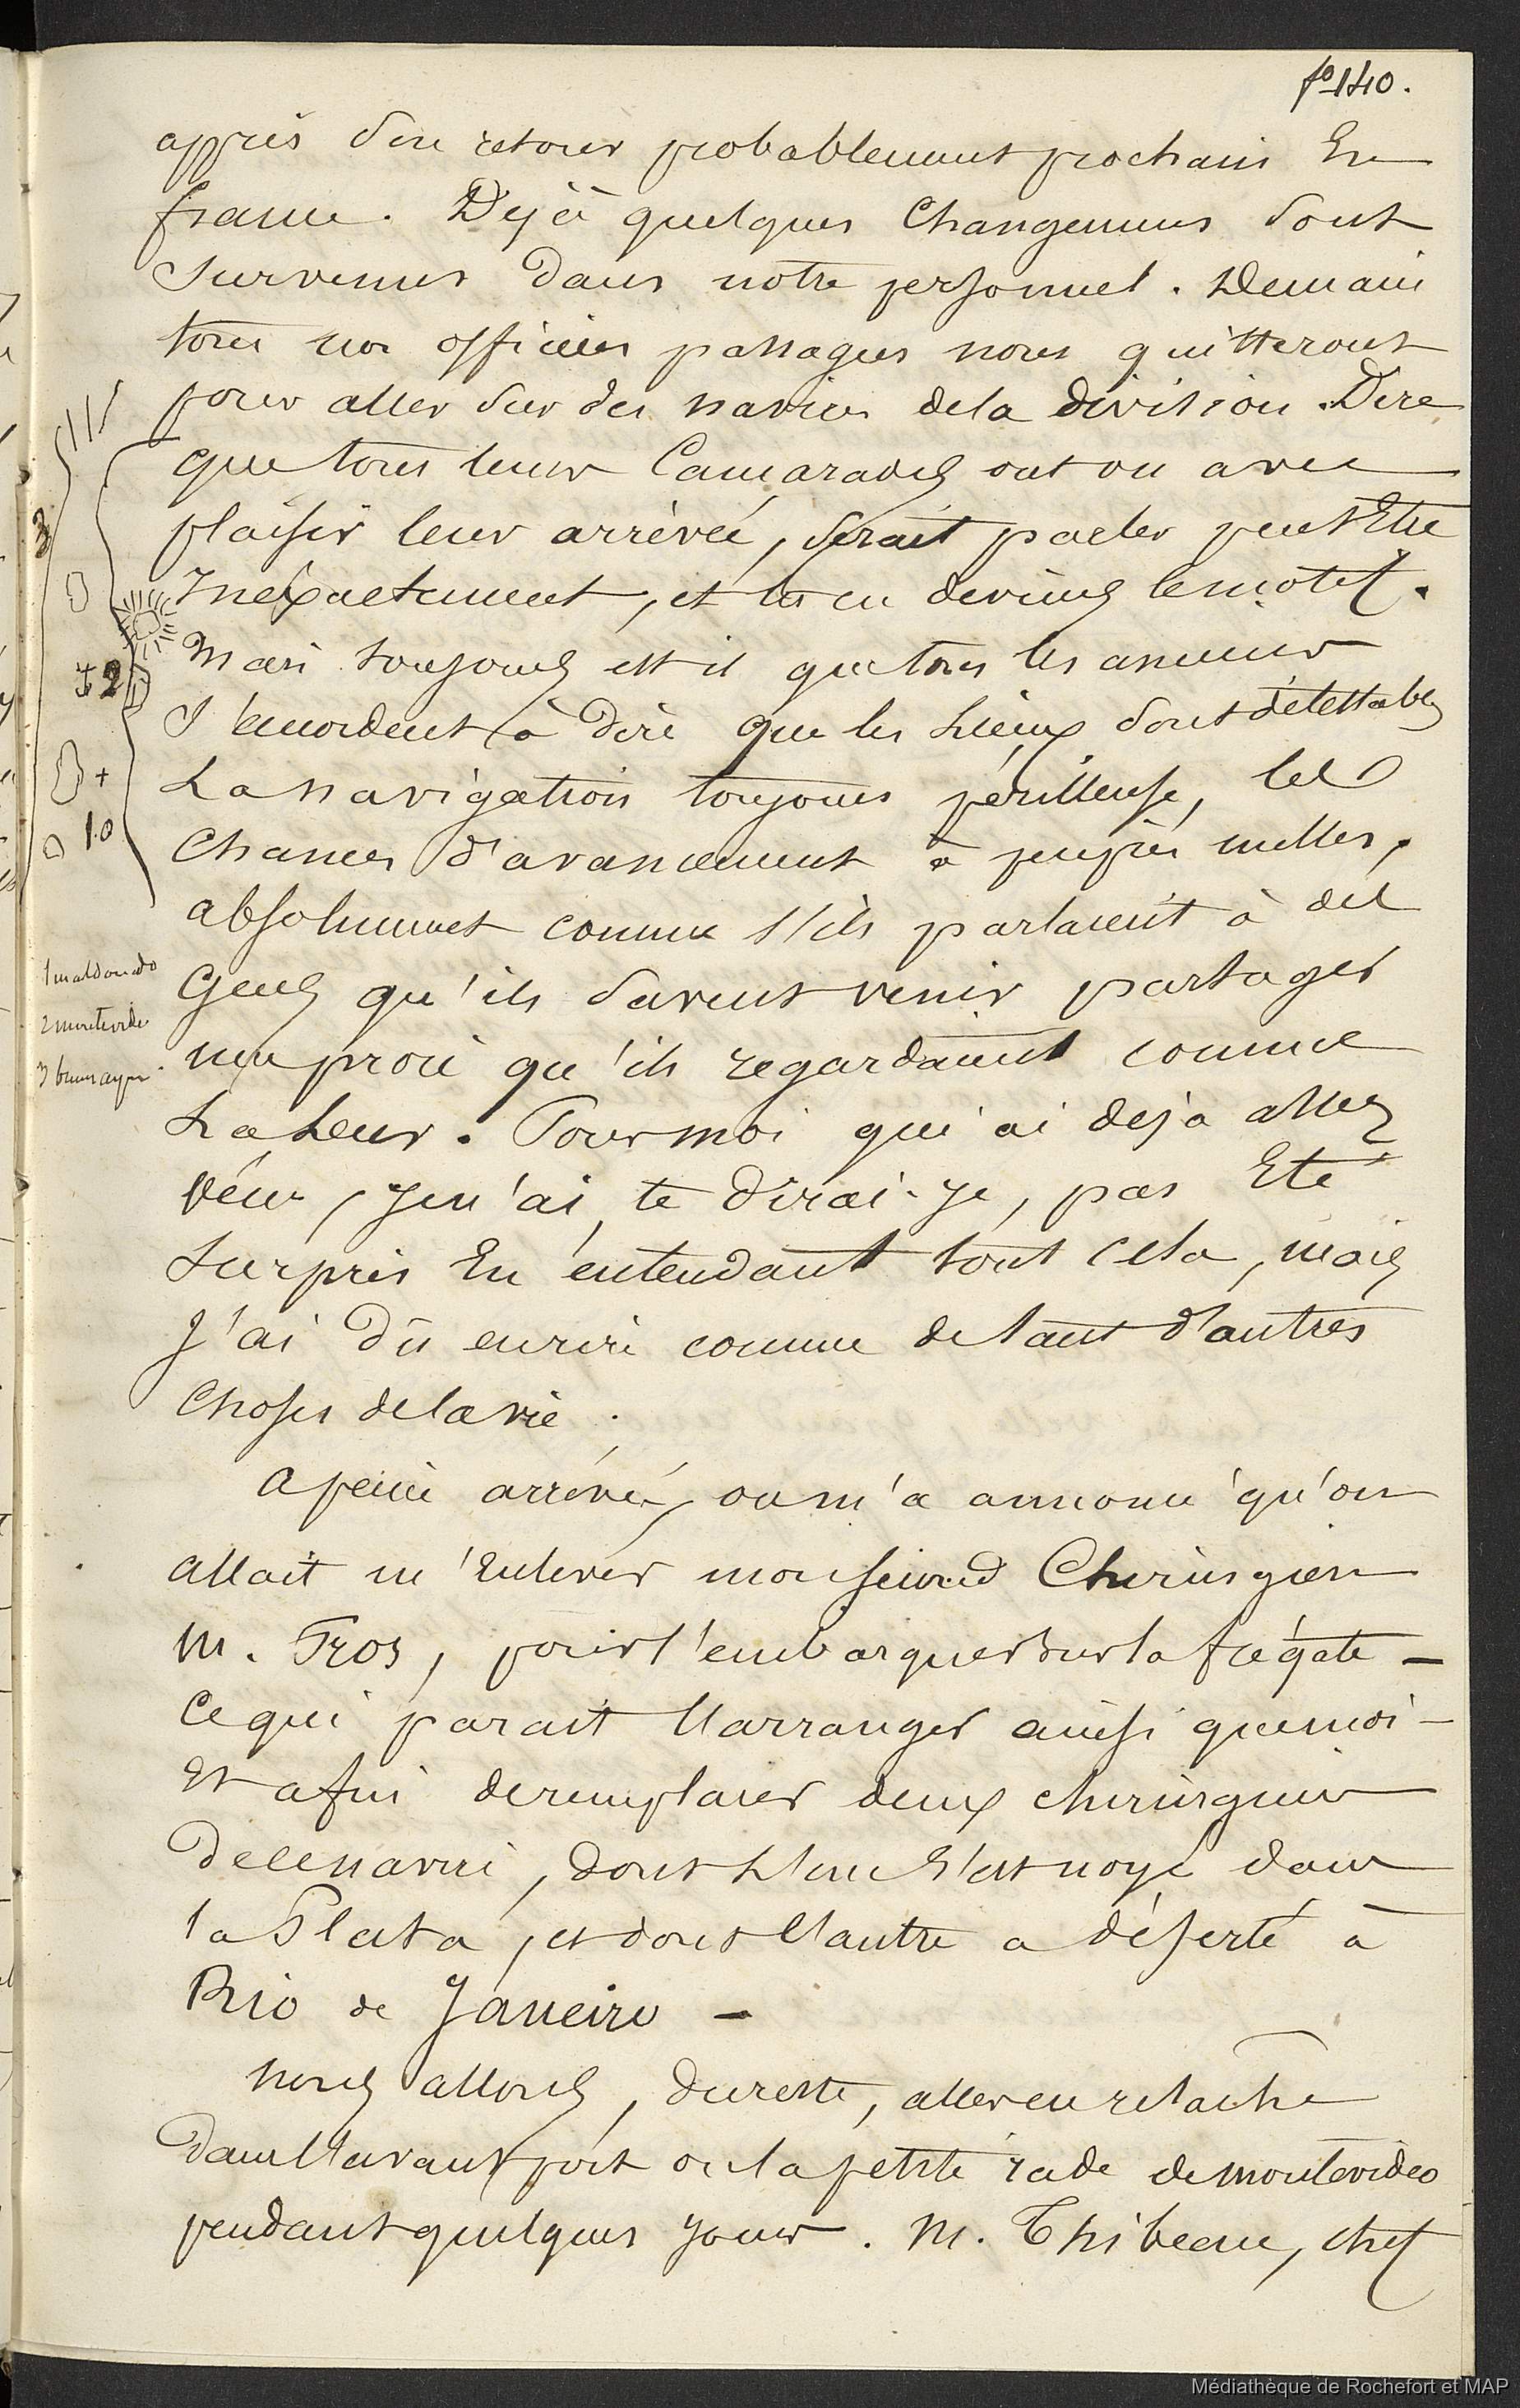 fo 140.
après d'un retour probablement prochain En
france. Déjà quelques Changemens sont
survenus dans notre personnel. Demain
tous nos officiers passagers nous quitteront
pour aller sur des navires de la division. Dire
que tous leurs Camarades ont vu avec
plaisir leur arrivée, serait parler peut Etre
Inexactement, et tu en devines le motif.
Mais toujours est il que tous les anciens
s'accordent à dire que les Lieux sont détestables
La navigation toujours périlleuse, les
Chances d'avancement à peu près nulles,
absolument comme s'ils parlaient à des
Gens qu'ils savent venir partager
une proie qu'ils regardaient comme
La Leur. Pour moi qui ai déja assez
vécu, je n'ai, te dirai-je, pas Eté
surpris En entendant tout cela, mais
J'ai dû en rire comme de tant d'autres
Choses de la vie.
a peine arrivé, on m'a annoncé qu'on
allait m'Enlever mon second Chirurgien
M. Fros, pour l'embarquer sur la frégate -
Ce qui parait l'arranger ainsi que moi -
Et afin de remplacer deux chirurgiens
de ce navire, dont L'un s'est noyé dans
la Plata, et dont l'autre a déserté à
Rio de Janeiro -
Nous allons, du reste, aller en relâche
dans l'avant port ou la petite rade de montevideo
pendant quelques jours. M. Thibeau, chef
3
2
+
10
1 maldonado
2 montevideo
3 buenos ayres.
Médiathèque de Rochefort et MAP